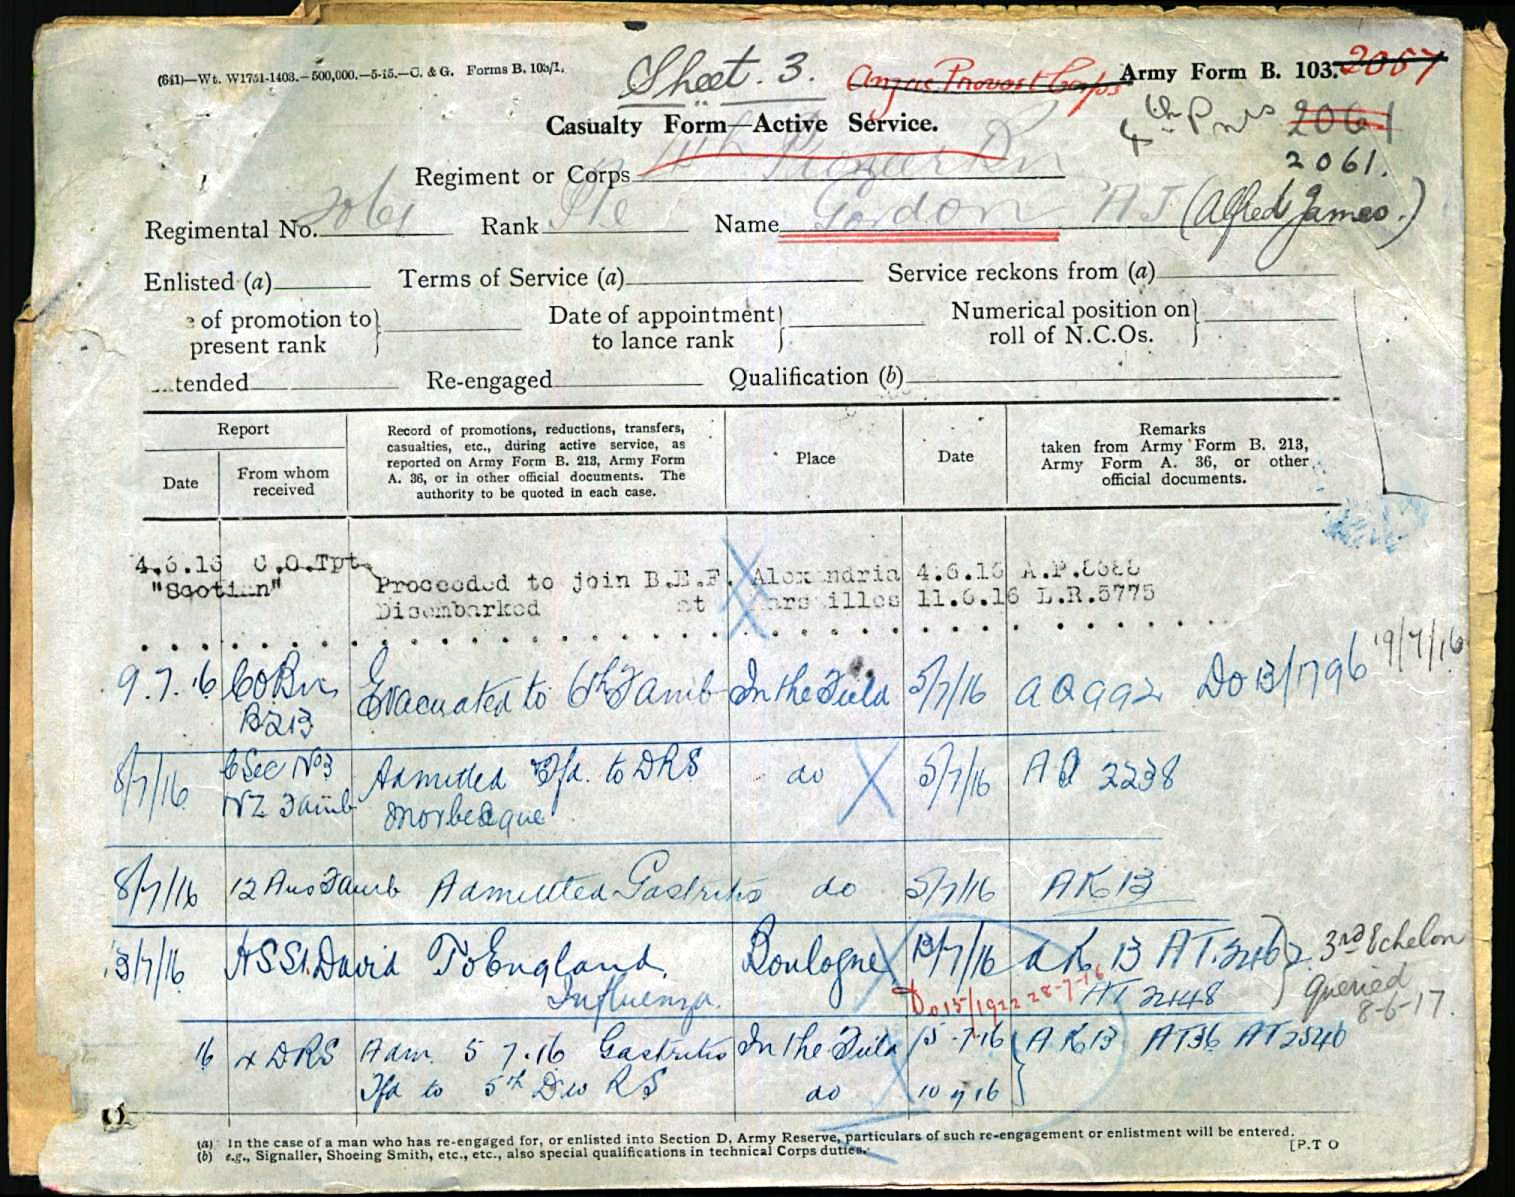 (641)—Wt. W1751-1403.—500,000.—5-15.—C. & G. Forms B. 103/1.
Sheet. 3.
Anzac Provost Corps
Army Form B. 103.
2057
4th Pnrs
2061
2061.
Casualty Form—Active Service.
Regiment or Corps 4th Pioneer Bn
Regimental No. 2061 Rank Pte Name Gordon A J (Alfred James.)
Enlisted (a) Terms of Service (a) Service reckons from (a)
of promotion to present rank Date of appointment to lance rank Numerical position on roll of N.C.Os.
tended Re-engaged Qualification (b)
Report
Date
From whom received
Record of promotions, reductions, transfers, casualties, etc., during active service, as reported on Army Form B. 213, Army Form A. 36, or in other official documents. The authority to be quoted in each case.
Place
Date
Remarks taken from Army Form B. 213, Army Form A. 36, or other official documents.
4.6.16 C.O.Tpt Proceeded to join B.E.F. Alexandria 4.6.16 A.P.8688
"Scotian" Disembarked at Marseilles 11.6.16 L.R.5775
9.7.16 CO Evacuated to 6th Famb In the Field 5/7/16 AQ992 Do 13/1796 19/7/16
B213
8/7/16 C Sec No3 Admitted Tfd. to DRS do 5/7/16 AQ 2238
NZ Famb Morbecque
8/7/16 12 Aus Famb Admitted Gastritis do 5/7/16 AK 13
13/7/16 HS St. David To England Boulogne 13/7/16 AK 13 AT.2462 3rd Echelon
Influenza. Do 15/1922 28-7-16 AT 2448 queried
8-6-17.
16 4 DRS Adm. 5 7.16 Gastritis In the Field 5-7-16 AK13 AT36 AT2540
Tfd to 5th Div RS do 10 7 16
(a) In the case of a man who has re-engaged for, or enlisted into Section D, Army Reserve, particulars of such re-engagement or enlistment will be entered.
(b) e.g., Signaller, Shoeing Smith, etc., etc., also special qualifications in technical Corps duties.
[P.T O